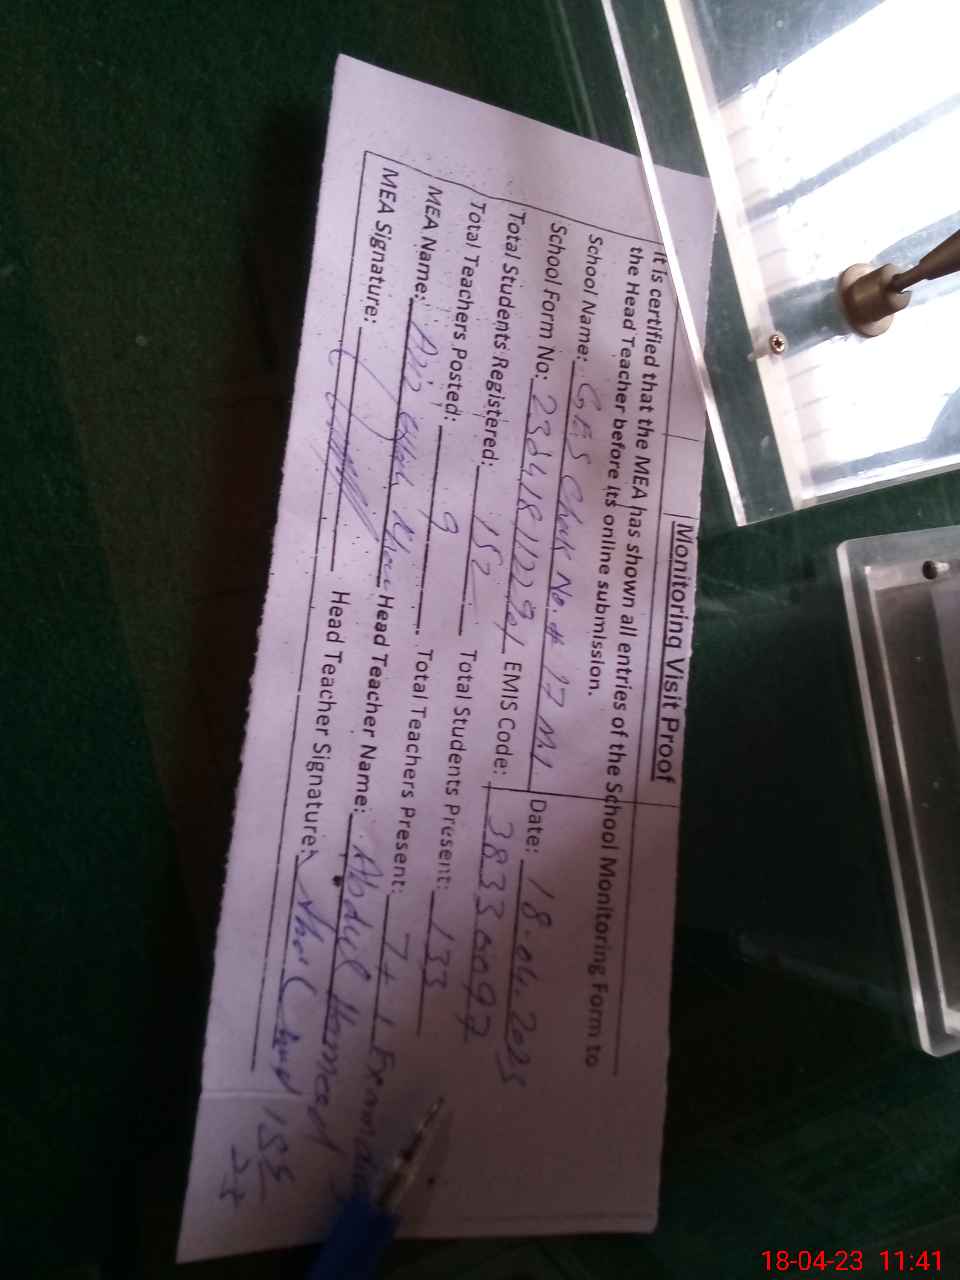 Monitoring Visit Proof
It is certified that the MEA has shown all entries of the School Monitoring Form to
the Head Teacher before its online submission.
School Name: GES Chak No. # 17 ML Date: 18.04.2023
School Form No: EMIS Code: 38330097
Total Students Registered: 152 Total Students Present: 133
Total Teachers Posted: 9 Total Teachers Present: 7+1
MEA Name: Head Teacher Name: Abdul Hameed
MEA Signature: Head Teacher Signature:
18-04-23 11:41